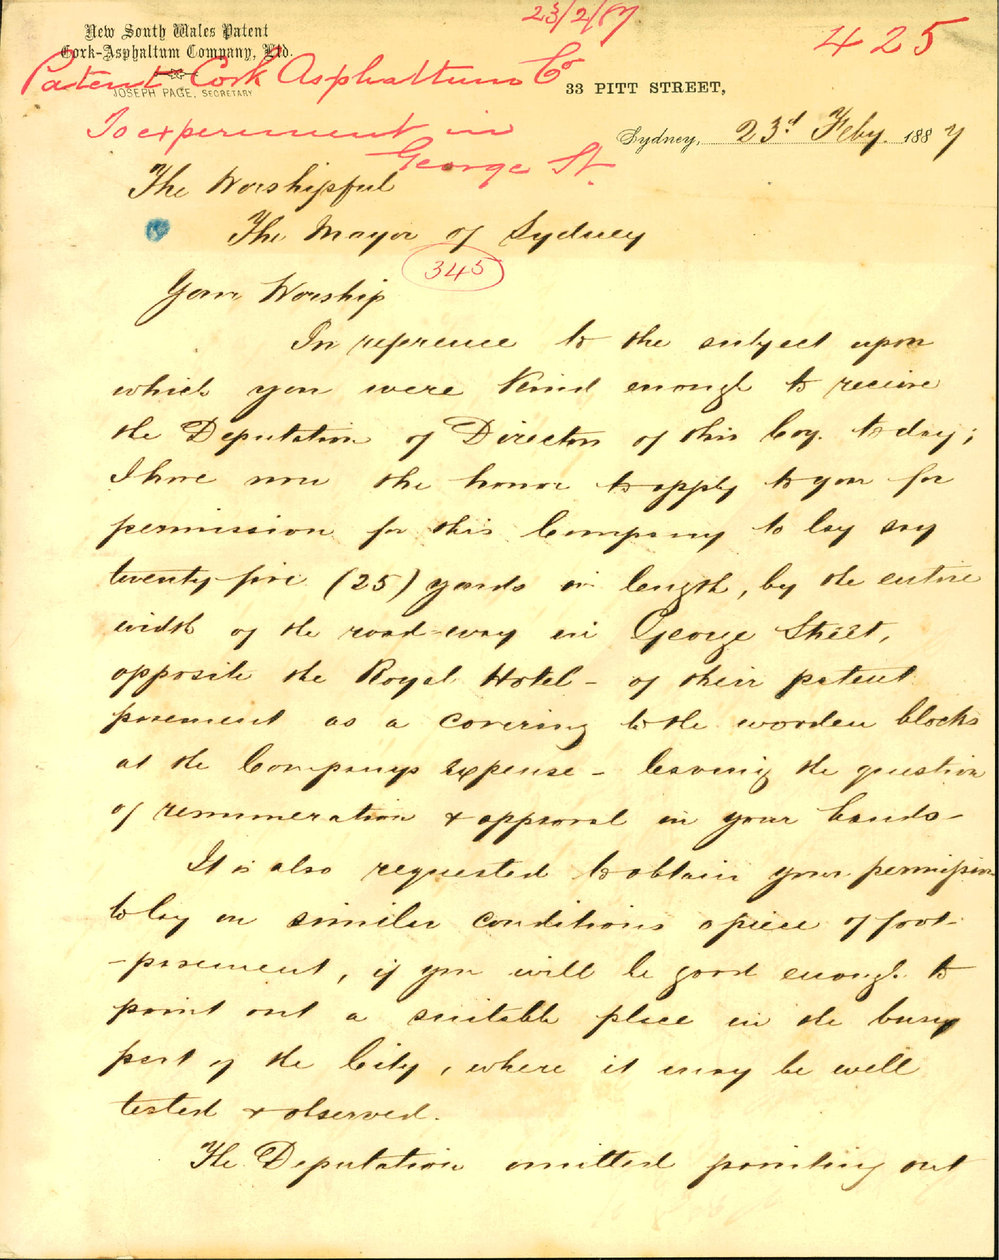 23/2/87
425
New South Wales Patent
Cork-Asphaltum Company, Ltd.
Patent Cork Asphaltum Co
JOSEPH PAGE, SECRETARY
33 PITT STREET,
To experement in
George St.
Sydney, 23d Feby. 1887
The Worshipful
The Mayor of Sydney
345
Your Worship
In reference to the subject upon
which you were kind enough to receive
the Deputation of Directors of this Coy. to day;
I have now the honor to apply to you for
permission for this Company to lay say
twenty-five (25) yards in length, by the entire
width of the road-way in George Street,
opposite the Royal Hotel - of their patent
pavement as a covering to the wooden blocks
at the Companys expense - leaving the question
of remuneration & approval in your hands -
It is also requested to obtain your permission
to lay on similar conditions a piece of foot-
-pavement, if you will be good enough to
point out a suitable place in the busy
part of the City, where it may be well
tested & observed.
The Deputation omitted pointing out